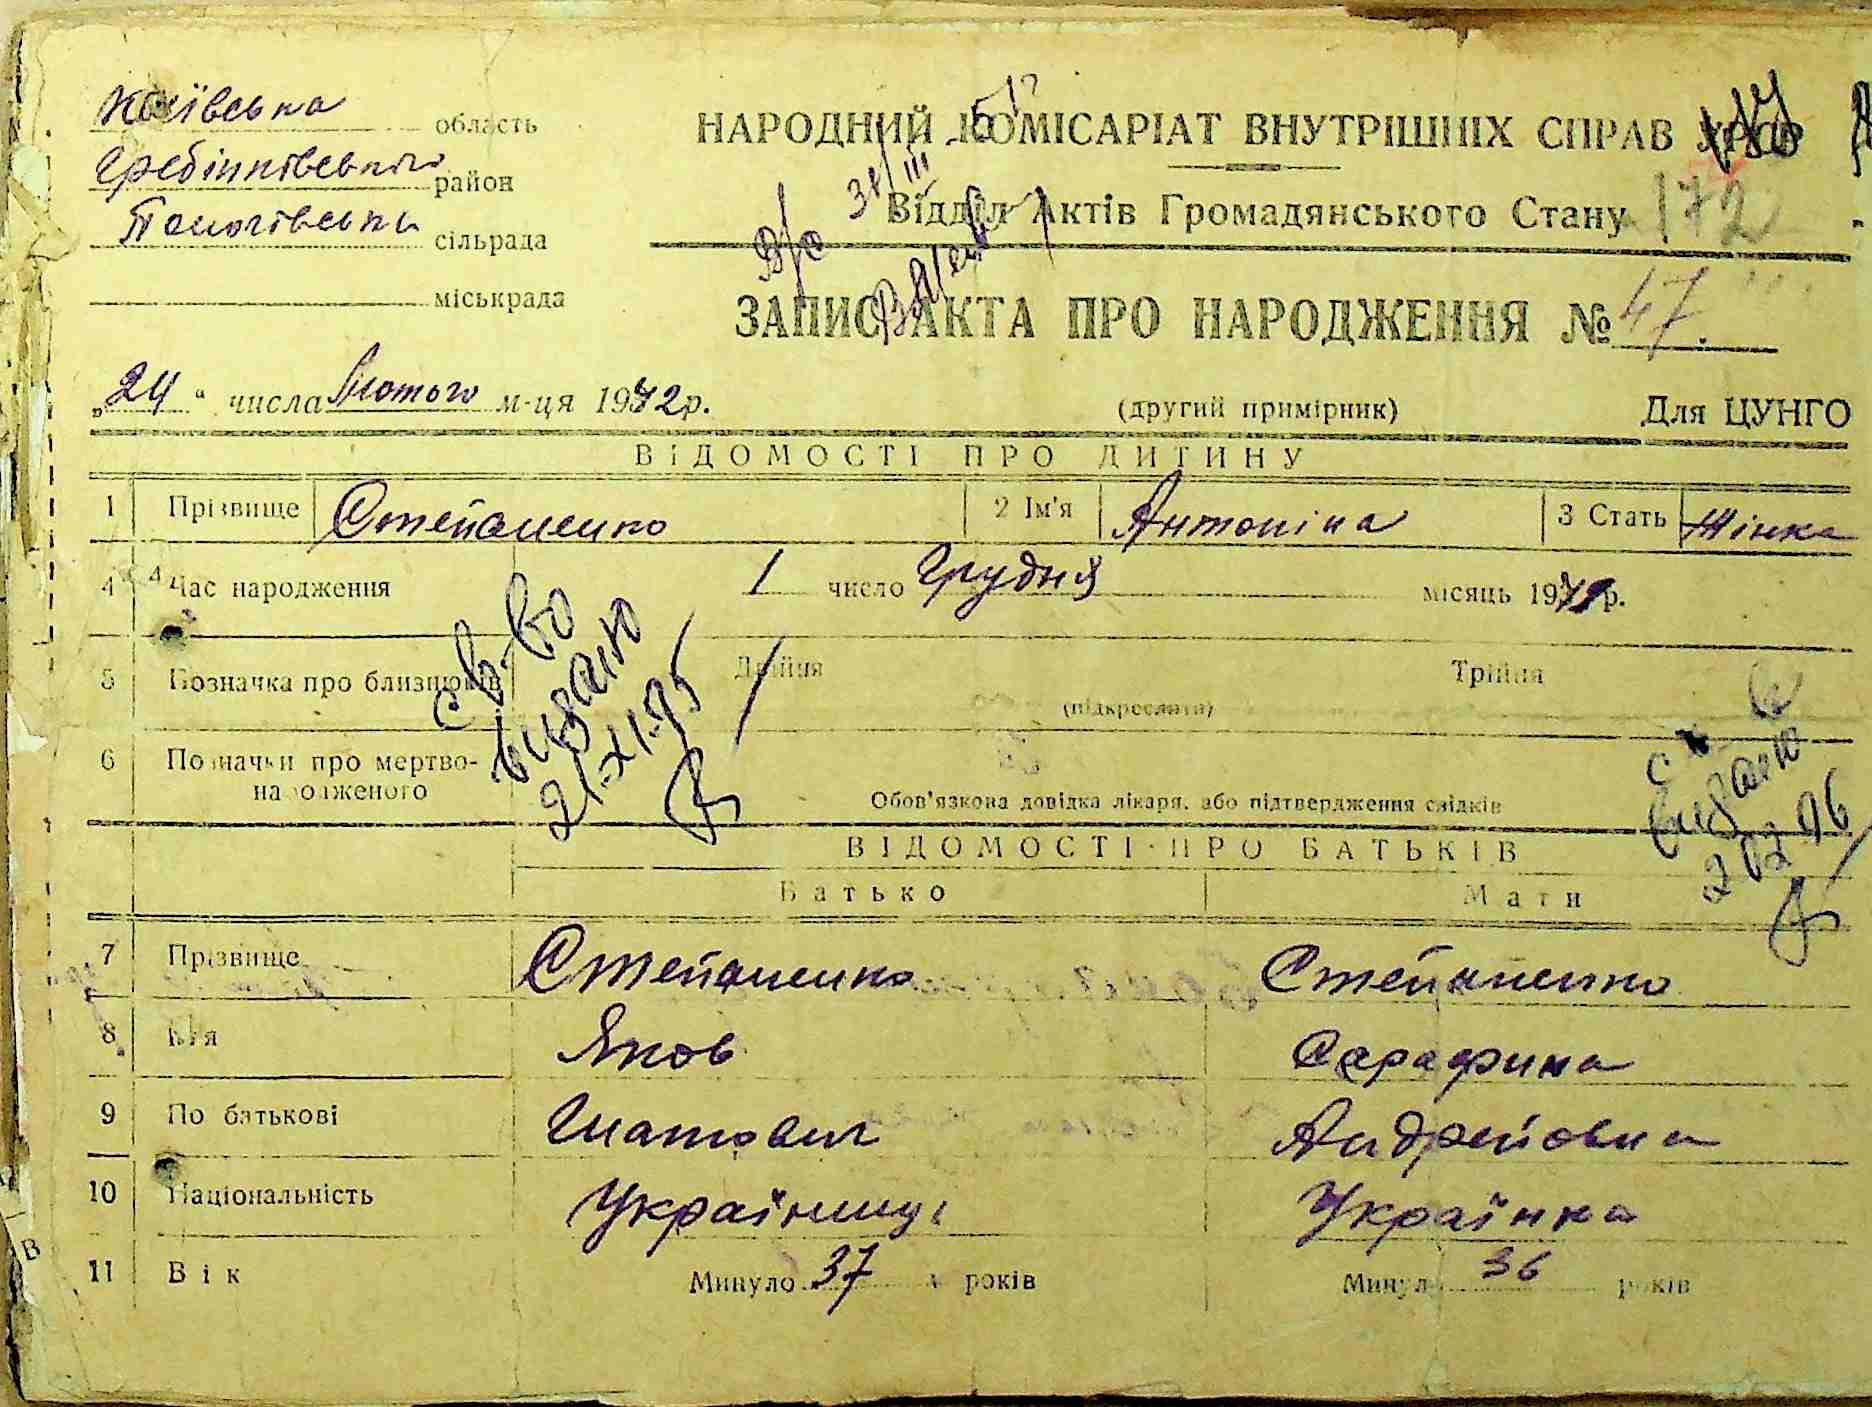 Київська область
Гребінківського район
сільрада
міськрада
НАРОДНИЙ КОМІСАРІАТ ВНУТРІШНІХ СПРАВ
Відділ Актів Громадянського Стану
172
ЗАПИС АКТА ПРО НАРОДЖЕННЯ № 47.
„24“ числа Лютого м-ця 1942 р.
(другий примірник) Для ЦУНГО
ВІДОМОСТІ ПРО ДИТИНУ
1 Прізвище Степаненко 2 Ім'я Антоніна 3 Стать Жінка
4 Час народження 1 число Грудня місяць 1941 р.
5 Позначка про близнюків Двійня Трійня
(підкреслити)
6 Позначки про мертво-
народженого
Обов'язкова довідка лікаря, або підтвердження свідків
св-во
видано
21.XI.95
видано
ВІДОМОСТІ ПРО БАТЬКІВ
Батько Мати
7 Прізвище Степаненко Степаненко
8 Ім'я Яков Серафина
9 По батькові Гнатович Андрейовна
10 Національність Українець Українка
11 Вік Минуло 37 років Минуло 36 років